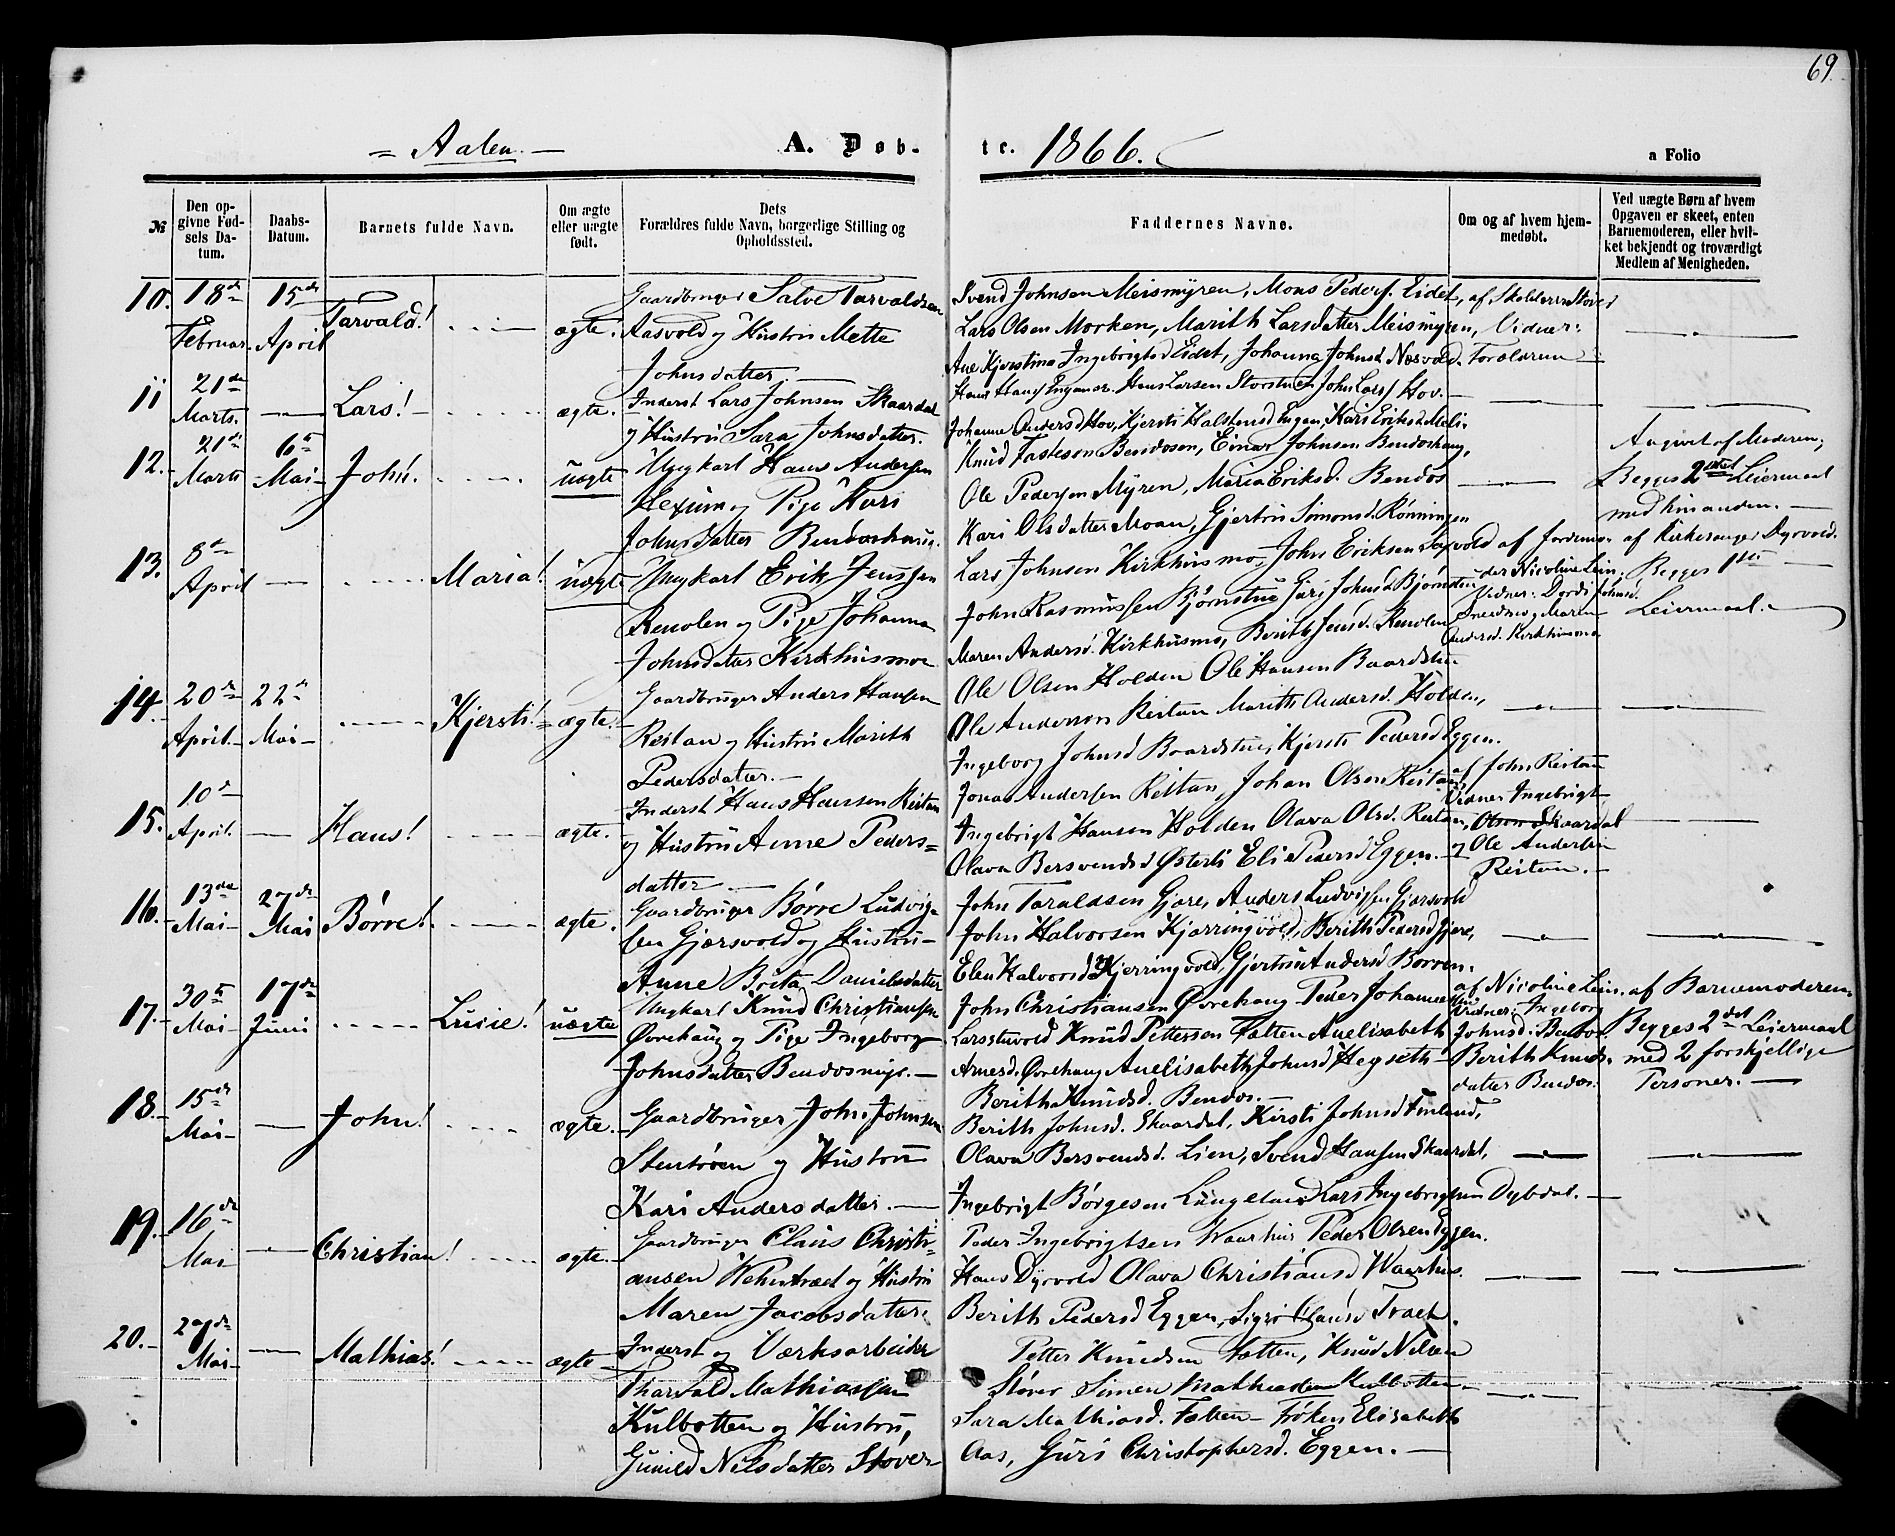 69.
= Aalen. -
A. Døb-
te. 1866.
a Folio
№
Den op-
givne Fød-
sels Da-
tum.
Daabs-
Datum.
Barnets fulde Navn.
Om ægte
eller uægte
født.
Dets
Forældres fulde Navn, borgerlige Stilling og
Opholdssted.
Faddernes Navne.
Om og af hvem hjem-
medøbt.
Ved uægte Børn af hvem
Opgaven er skeet, enten
Barnemoderen, eller hvil-
ket bekjendt og troværdigt
Medlem af Menigheden.
10. 18de
Februar
15de
April
Tarvald!
ægte.
Gaardbruger Salve Tarvaldsen
Aasvold og Hustru Mette
Johnsdatter.
Svend Johnsen Meismyren, Mons Peders. Eidet,
Lars Olsen Morken, Marith Larsdatter Meismyren,
Ane Kjerstina Ingebrigtsd Eidet, Johanna Johnsd. Næsvold.
af Skolelærer Stover
Vidner:
Forældrene
11 21de
Marts.
Lars!
ægte.
Inderst Lars Johnsen Skaardal
og Hustru Sara Johnsdatter.
Hans Larsen Storstuen John Lars. Hov.
Johanne Andersd Hov, Kjersti Halstensd Engen, Kari Eriksd
12. 21de
Marts
6te
Mai
John!
uægte
Ungkarl Hans Andersen
Hexum og Pige Kari
Johnsdatter Bendoshaug.
Knud Fastesen Bendosen, Einar Johnsen Bendoshaug,
Ole Pedersen Myren, Maria Eriksd. Bendos
Kari Olsdatter Moan, Gjertru Simonsd. Rønningen
Angivet af Moderen;
Begges 2det Leiermaal
med hinanden.
13. 8de
April
Maria!
uægte
Ungkarl Erik Jenssen
Renolen og Pige Johanna
Johnsdatter Kirkhusmoe
Lars Johnsen Kirkhusmo, John Eriksen
John Rasmussen Bjørnstue Guri Johnsd. Bjørnstu
Maren Andersd. Kirkhusmo, Berith Jensd. Renolen
af Jordemo-
der Nicoline Lein,
Vidner: Dordi Johnsd.
og Maren
Andersd. Kirkhusmo
af Kirkesanger Dyrvold.
Begges 1ste
Leiermaal.
14. 20de
April.
22de
Mai
Kjersti!
ægte.
Gaardbruger Anders Hansen
Reitan og Hustru Marith
Pedersdatter.
Ole Olsen Holden Ole Hansen Baardstu
Ole Anderson Reitan Marith Andersd. Holden,
Ingeborg Johnsd Baardstue, Kjersti Pedersd Eggen.
15. 10de
April.
Hans!
ægte.
Inderst Hans Hansen Reitan
og Hustru Anne Peders=
datter
Jonas Andersen Reitan, Johan Olsen Reitan,
Ingebrigt Hansen Holden Olava Olsd. Reitan,
Olava Bersvendsd Østerli Eli Pedersd Eggen.
af John Reitan
Vidner Ingebrigt
Olsen Skaardal
og Ole Andersen
Reitan.
16. 13de
Mai
27de
Mai
Børre!
ægte.
Gaardbruger Børre Ludvig-
sen Gjersvold og Hustru
Anne Brita Danielsdatter
John Taraldsen Gjære, Anders Ludvigsen Gjersvold
John Halvorsen Kjærringvold, Berith Pedersd Gjære,
Elen Halvorsd Kjerringvold, Gjertru Andersd Borren.
17. 30te
Mai
17de
Juni
Lucie!
uægte
Ungkarl Knud Christiansen
Øvrehaug og Pige Ingeborg
Johnsdatter Bendosmyr.
John Christiansen Øvrehaug Peder Johannes
Larsstuvold Knud Pettersen Tatten Anelisabeth
Arnesd. Øvrehaug Anelisabeth Johnsd Hegseth
Berith Knudsd. Bendos.
af Nicoline Lein.
Vidner: Ingeborg
Johnsd. Bendos
Berith Knuds-
datter Bendos.
af Barnemoderen.
Begges 2det Leiermaal
med 2 forskjellige
Personer.
18. 15de
Mai
John!
ægte.
Gaardbruger John Johnsen
Stentrøen og Hustru
Kari Andersdatter.
Berith Johnsd. Skaardal, Kirsti Johnsd Finland,
Olava Bersvendsd. Lien, Svend Hansen Skaardal,
Ingebrigt Børgesen Langeland Lars Ingebrigtsen Dybdal.
19. 16de
Mai
Christian!
ægte.
Gaardbruger Claus Christi-
ansen Hehntræet og Hustru
Maren Jacobsdatter.
Peder Ingebrigtsen Waarhus Peder Olsen Eggen.
Hans Dyrvold Olava Christiansd Waarhus.
Berith Pedersd Eggen, Sigri Clausd Træet.
20. 27de
Mai
Mathias!
ægte
Inderst og Værksarbeider
Tharvald Mathiassen
Kulbotten og Hustru,
Gunild Nilsdatter Støver
Petter Knudsen Tatten, Knud Nilsen
Støver Simen Mathiassen Kulbotten
Sara Mathiasd. Tatten Frøken Elisabeth
Aas, Guri Christophersd. Eggen.